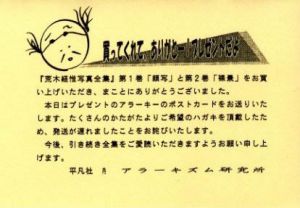 買ってくれて、ありがとー!プレゼントだよ
『荒木経惟写真全集』第1巻「顔写」と第2巻「裸景」をお買
い上げいただき、まことにありがとうございました。
本日はプレゼントのアラーキーのポストカードをお送りいた
します。たくさんのかたがたよりご希望のハガキを頂戴したた
め、発送が遅れましたことをお詫びいたします。
今後、引き続き全集をご愛読いただきますようお願い申し上
げます。
平凡社 アラーキズム研究所